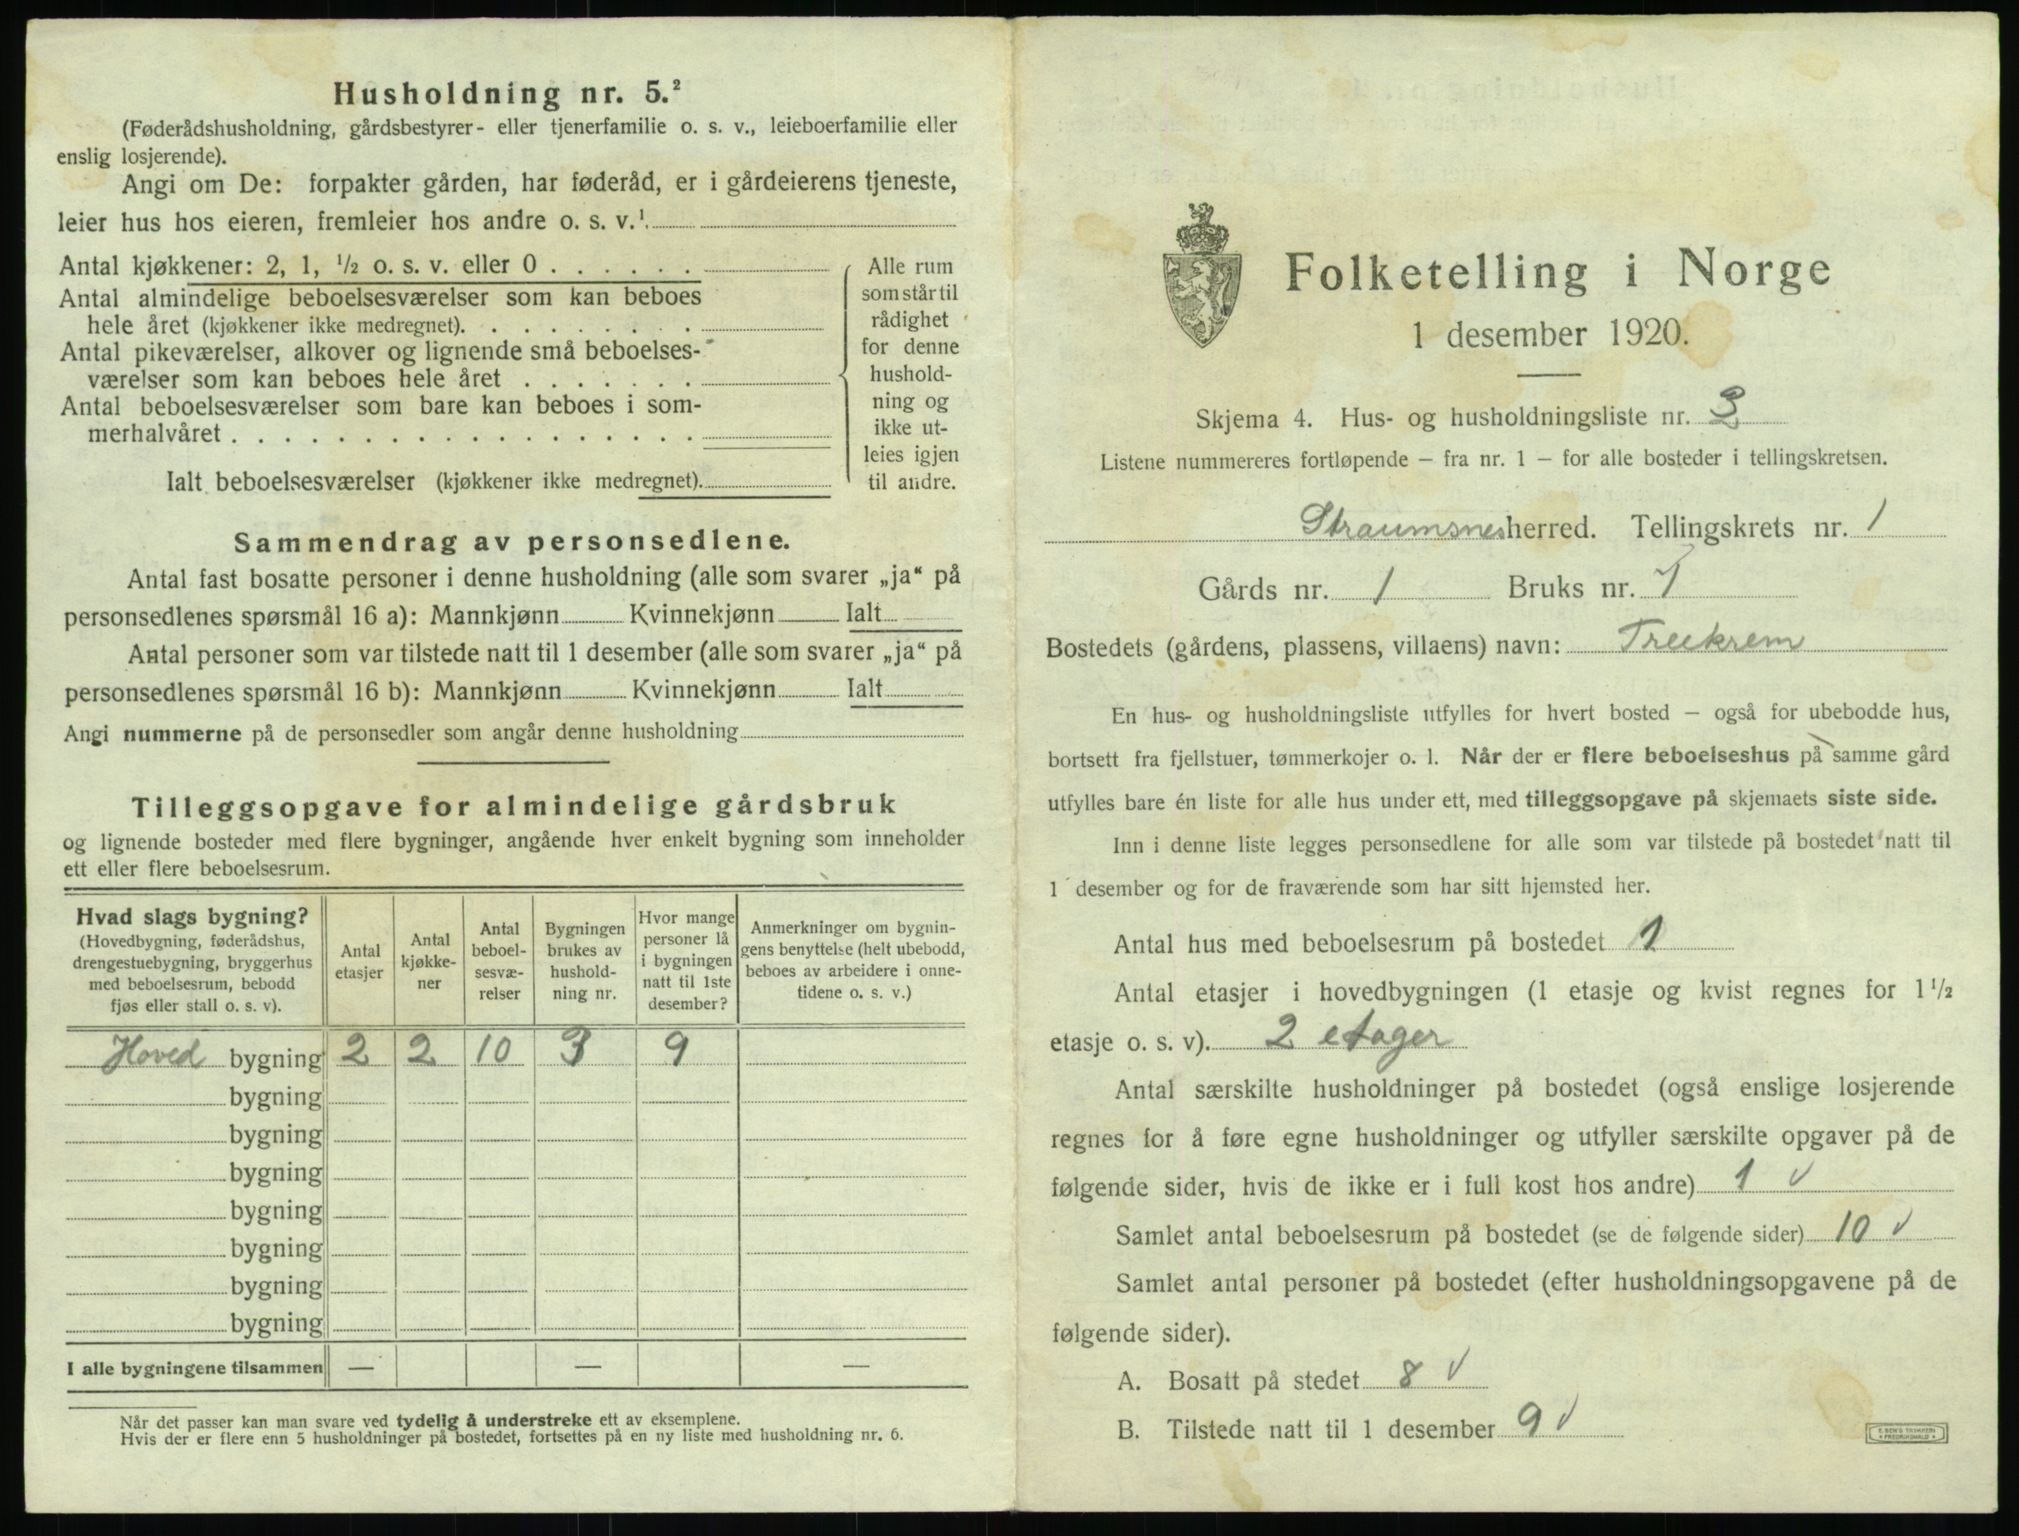 Husholdning nr. 5.²
(Føderådshusholdning, gårdsbestyrer- eller tjenerfamilie o. s. v., leieboerfamilie eller
enslig losjerende).
Angi om De: forpakter gården, har føderåd, er i gårdeierens tjeneste,
leier hus hos eieren, fremleier hos andre o. s. v.¹
Antal kjøkkener: 2, 1, ½ o. s. v. eller 0 . . . . . .
Antal almindelige beboelsesværelser som kan beboes
hele året (kjøkkener ikke medregnet). . . . . . . . .
Antal pikeværelser, alkover og lignende små beboelses-
værelser som kan beboes hele året . . . . . . .
Antal beboelsesværelser som bare kan beboes i som-
merhalvåret . . . . . . . . . . . . . . . . . .
Ialt beboelsesværelser (kjøkkener ikke medregnet).
Alle rum
som står til
rådighet
for denne
hushold-
ning og
ikke ut-
leies igjen
til andre.
Sammendrag av personsedlene.
Antal fast bosatte personer i denne husholdning (alle som svarer „ja“ på
personsedlenes spørsmål 16 a): Mannkjønn Kvinnekjønn Ialt
Antal personer som var tilstede natt til 1 desember (alle som svarer „ja“ på
personsedlenes spørsmål 16 b): Mannkjønn Kvinnekjønn Ialt
Angi nummerne på de personsedler som angår denne husholdning
Tilleggsopgave for almindelige gårdsbruk
og lignende bosteder med flere bygninger, angående hver enkelt bygning som inneholder
ett eller flere beboelsesrum.
Hvad slags bygning?
(Hovedbygning, føderådshus,
drengestuebygning, bryggerhus
med beboelsesrum, bebodd
fjøs eller stall o. s. v).
Antal
etasjer
Antal
kjøkke-
ner
Antal
beboel-
sesvæ-
relser
Bygningen
brukes av
hushold-
ning nr.
Hvor mange
personer lå
i bygningen
natt til 1ste
desember?
Anmerkninger om bygnin-
gens benyttelse (helt ubebodd,
beboes av arbeidere i onne-
tidene o. s. v.)
Hoved bygning 2 2 10 3 9
bygning
bygning
bygning
bygning
bygning
bygning
bygning
I alle bygningene tilsammen — — —
Når det passer kan man svare ved tydelig å understreke ett av eksemplene.
Hvis der er flere enn 5 husholdninger på bostedet, fortsettes på en ny liste med husholdning nr. 6.
Folketelling i Norge
1 desember 1920.
Skjema 4. Hus- og husholdningsliste nr. 3
Listene nummereres fortløpende – fra nr. 1 – for alle bosteder i tellingskretsen.
Straumsnes herred. Tellingskrets nr. 1
Gårds nr. 1 Bruks nr. 7
Bostedets (gårdens, plassens, villaens) navn: Treekrem
En hus- og husholdningsliste utfylles for hvert bosted – også for ubebodde hus,
bortsett fra fjellstuer, tømmerkojer o. l. Når der er flere beboelseshus på samme gård
utfylles bare én liste for alle hus under ett, med tilleggsopgave på skjemaets siste side.
Inn i denne liste legges personsedlene for alle som var tilstede på bostedet natt til
1 desember og for de fraværende som har sitt hjemsted her.
Antal hus med beboelsesrum på bostedet 1
Antal etasjer i hovedbygningen (1 etasje og kvist regnes for 1½
etasje o. s. v). 2 etager
Antal særskilte husholdninger på bostedet (også enslige losjerende
regnes for å føre egne husholdninger og utfyller særskilte opgaver på de
følgende sider, hvis de ikke er i full kost hos andre) 1 v
Samlet antal beboelsesrum på bostedet (se de følgende sider) 10 v
Samlet antal personer på bostedet (efter husholdningsopgavene på de
følgende sider).
A. Bosatt på stedet 8 v
B. Tilstede natt til 1 desember 9 v